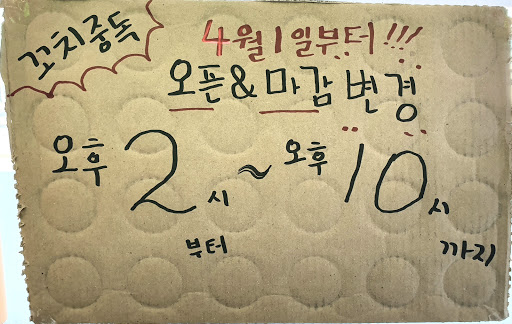 꼬치중독
4월1일부터!!!
오픈&마감 변경
오후 2시 ~ 오후 10시
부터
까지